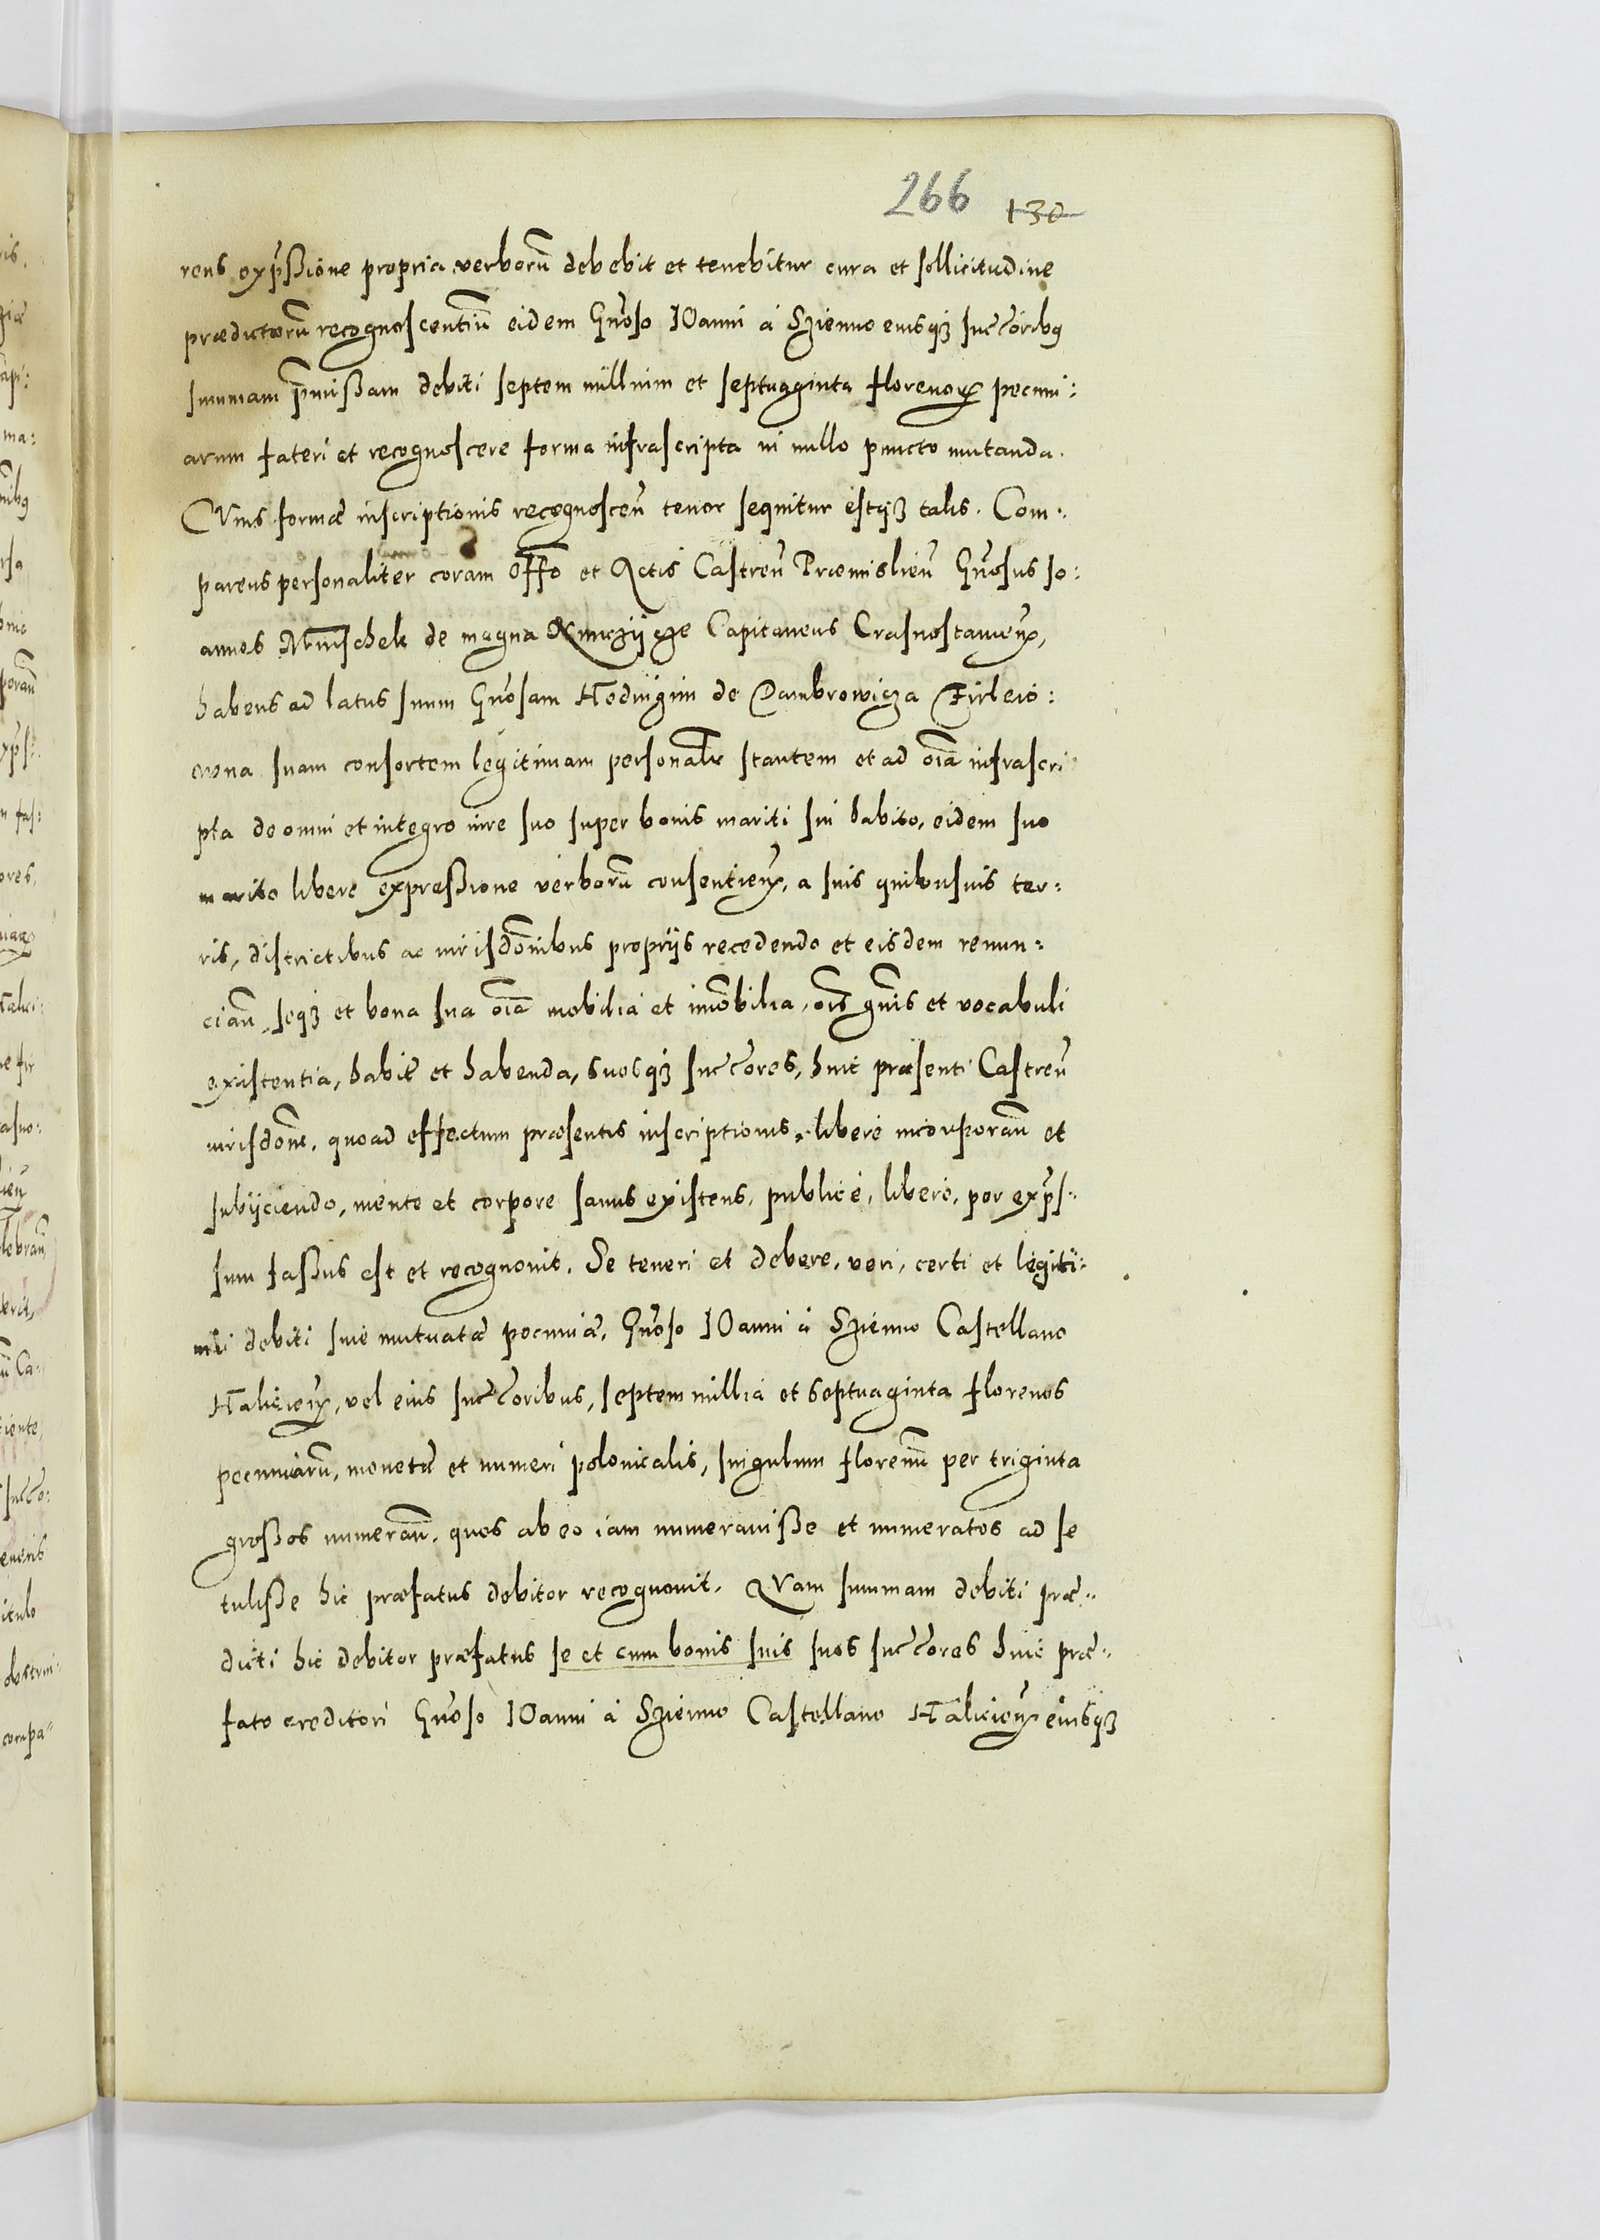 266 130
rens expͬssione propria verborũ debebit et tenebitur cura et sollicitudine
prædictorũ recognoscentiũ eidem Gñoso IOanni à Szienno eiusqȝ succr̃oribꝯ
summam p̃missam debiti septem millium et septuaginta florenoꝝ pecuni:
arum fateri et recognoscere forma infrascripta in nullo puncto mutanda.
CVius formæ inscriptionis recognosceñ tenor sequitur estqȝ talis. Com:
parens personaliter coram Offo et Actis Castreñ Præmislieñ Gñosus Io:
annes Mnischek de magna Kunczijcze Capitaneus Crasnostauieñ,
habens ad latus suum Gñosam Hedvigim de Dambrowicza Firleio:
owna suam consortem legitimam personalr̃ stantem et ad oĩa infrascri
pta de omni et integro iure suo super bonis mariti sui habito, eidem suo
marito libere expressione verborũ consentieñ, a suis quibusuis ter:
ris, districtibus ac iurisdõnibus propriis recedendo et eisdem renun:
ciañ, seqȝ et bona sua oĩa mobilia et imõbilia, oĩs gñis et vocabuli
existentia, habita et habenda, suosqȝ succr̃ores, huic præsenti Castreñ
iurisdõni, quoad effectum præsentis inscriptionis, libere incorporañ et
subijciendo, mente et corpore sanus existens, publicè, liberè, per expͬs:
sum fassus est et recognouit. Se teneri et debere, veri, certi et legiti:
mi debiti siue mutuatæ pecuniæ, Gñoso IOanni à Szienno Castellano
Halicieñ, vel eius succr̃oribus, septem millia et septuaginta florenos
pecuniarũ, monetæ et numeri polonicalis, singulum florenũ per triginta
grossos numerañ. quos ab eo iam numerauisse et numeratos ad se
tulisse hic præfatus debitor recognouit. QVam summam debiti præ:
dicti hic debitor præfatus se et cum bonis suis suos succr̃ores huic præ:
fato creditori Gñoso IOanni à Szienno Castellano Halicieñ eiusqȝ